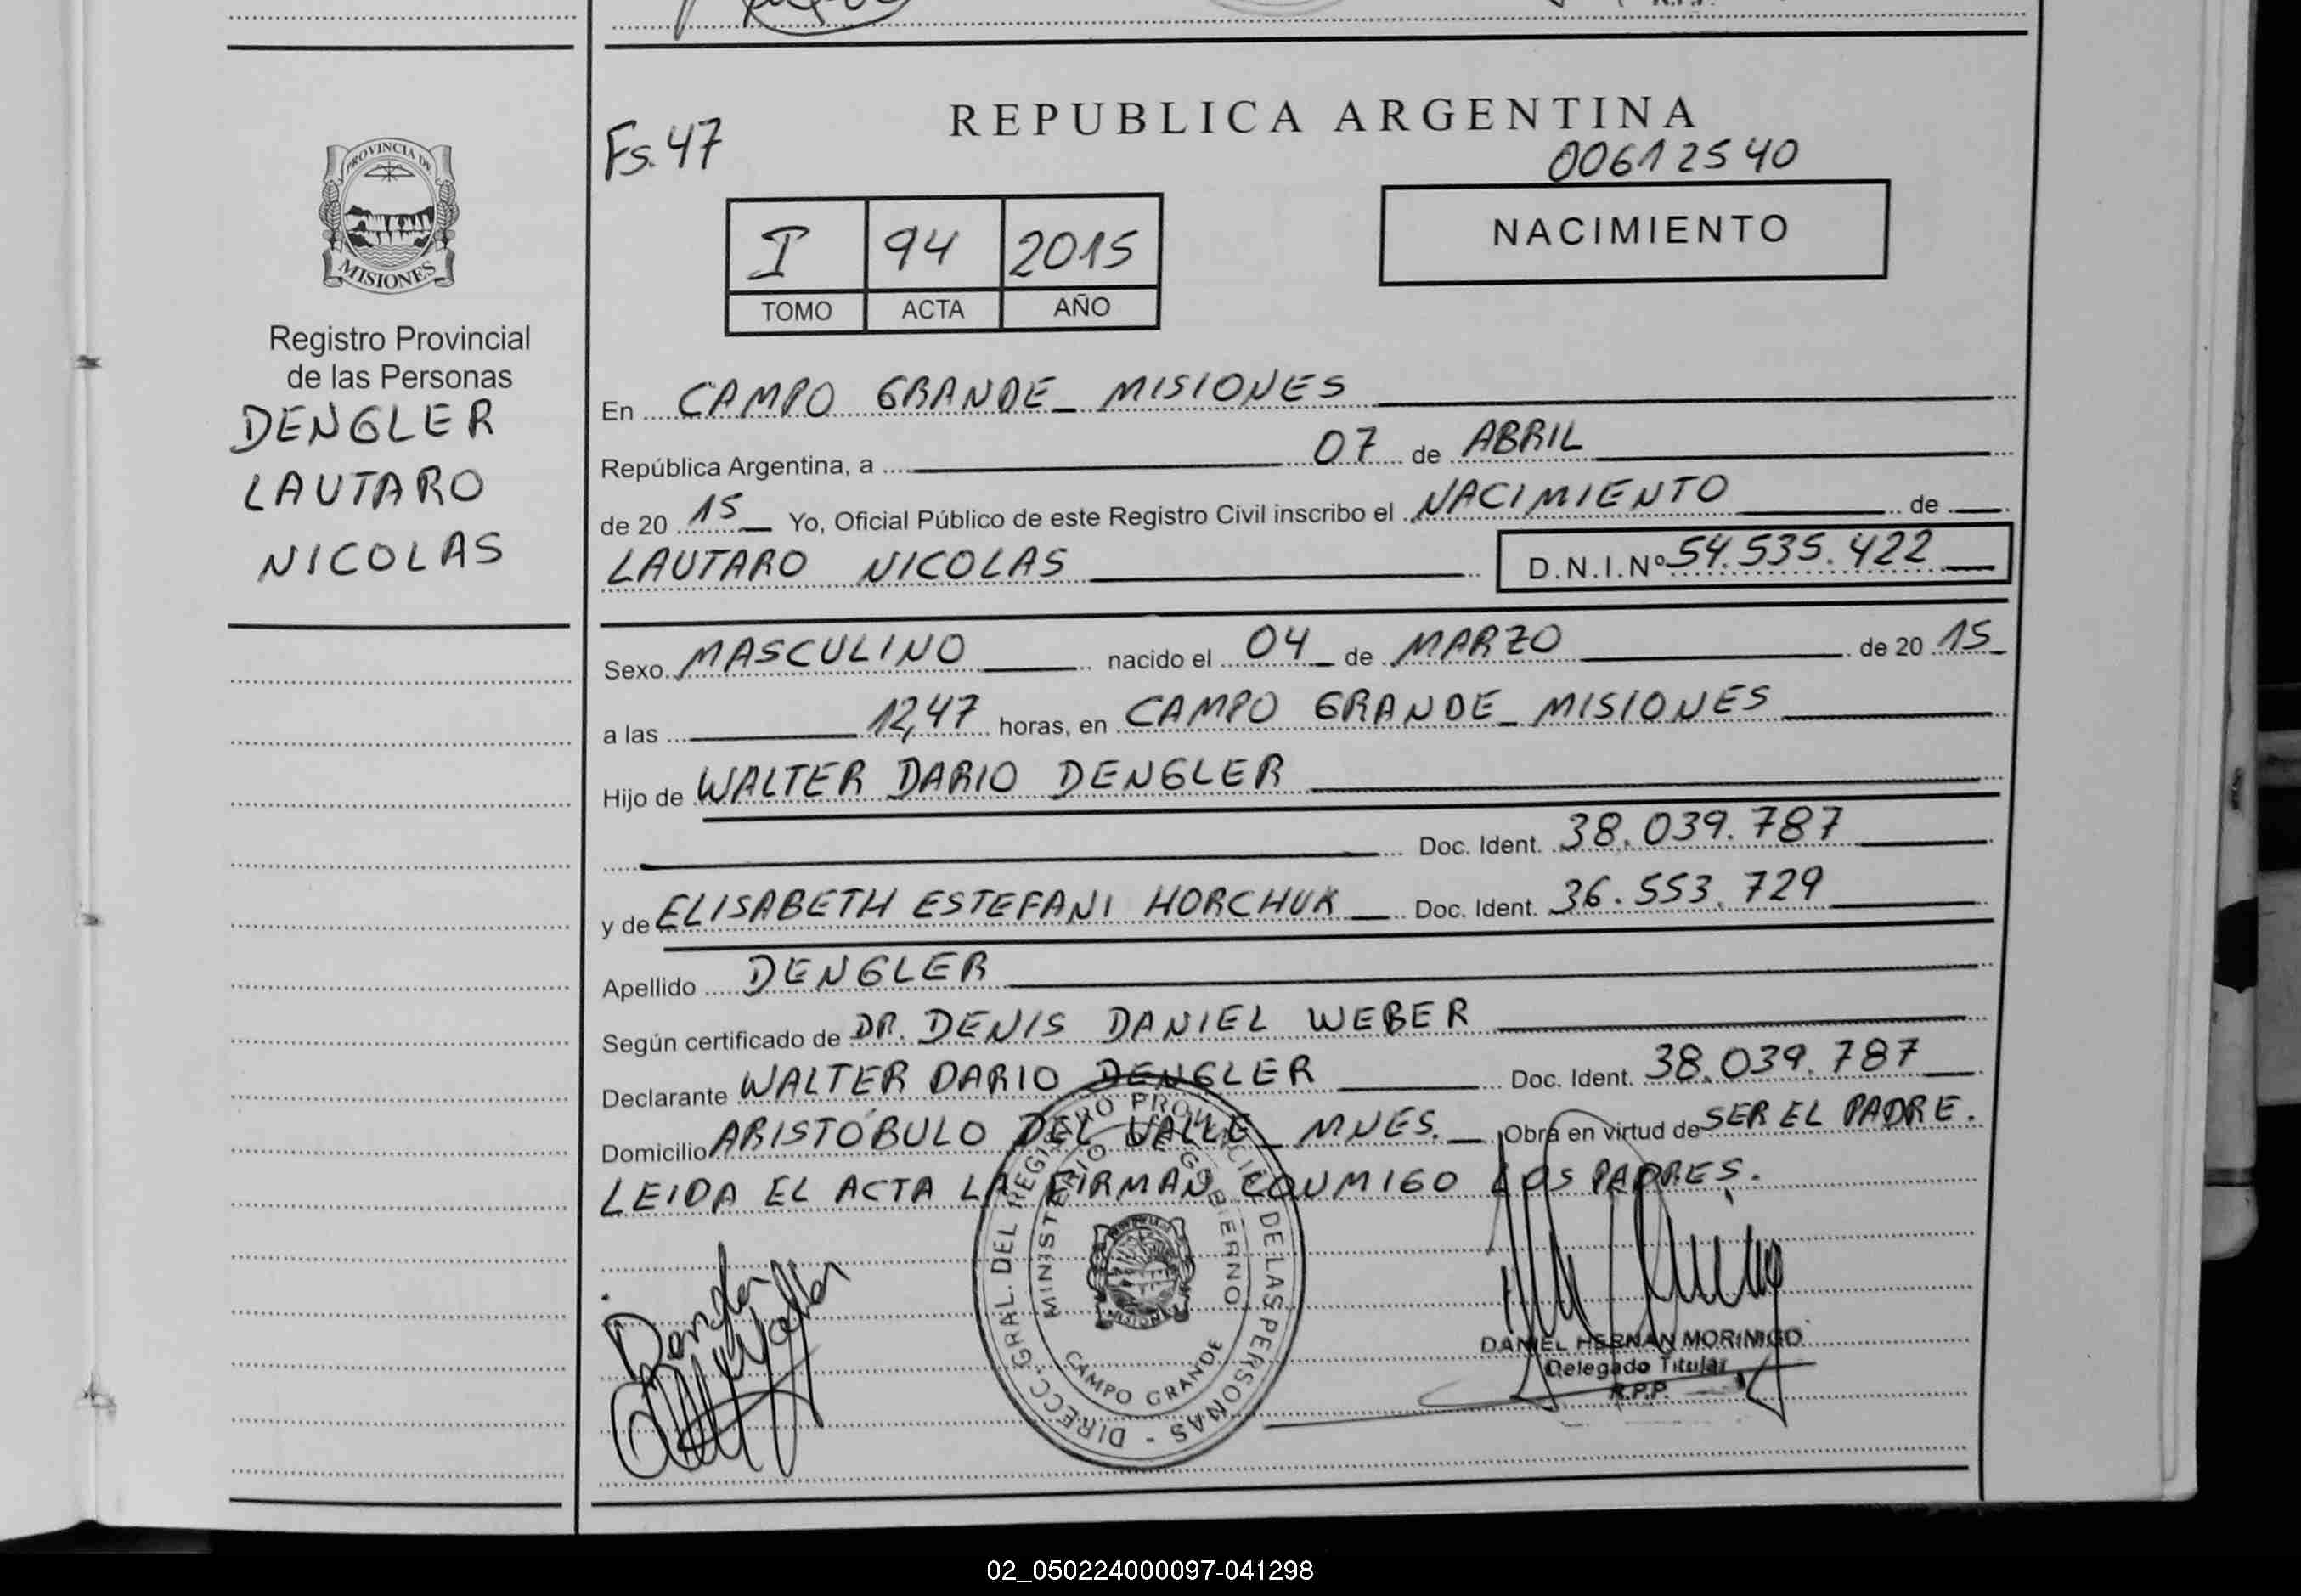 REPUBLICA ARGENTINA
Fs. 47
00612540
PROVINCIA DE
MISIONES
I 94 2015
TOMO ACTA AÑO
NACIMIENTO
Registro Provincial
de las Personas
DENGLER
LAUTARO
NICOLAS
En CAMPO GRANDE_ MISIONES
República Argentina, a 07 de ABRIL
de 20 15 Yo, Oficial Público de este Registro Civil inscribo el NACIMIENTO de
LAUTARO NICOLAS D.N.I.Nº 54.535.422
Sexo MASCULINO nacido el 04 de MARZO de 20 15
a las 12,47 horas, en CAMPO GRANDE_ MISIONES
Hijo de WALTER DARIO DENGLER
Doc. Ident. 38.039.787
y de ELISABETH ESTEFANI HORCHUK Doc. Ident. 36.553.729
Apellido DENGLER
Según certificado de DR. DENIS DANIEL WEBER
Declarante WALTER DARIO DENGLER Doc. Ident. 38.039.787
Domicilio ARISTÓBULO DEL VALLE_ MNES. Obra en virtud de SER EL PADRE.
LEIDA EL ACTA LA FIRMAN CONMIGO LOS PADRES.
DIRECC. GRAL. DEL REGISTRO PROVINCIAL DE LAS PERSONAS -
MINISTERIO DE GOBIERNO
CAMPO GRANDE
MISIONES
DANIEL HERNAN MORINIGO
Delegado Titular
R.P.P.
02_050224000097-041298